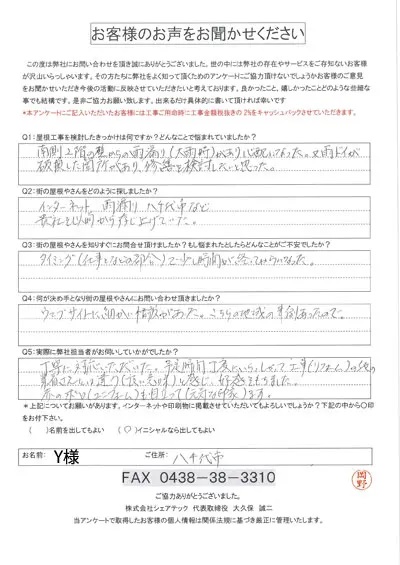 お客様のお声をお聞かせください
この度は弊社にお問い合わせを頂き誠にありがとうございました。世の中には弊社の存在やサービスをご存知ないお客様
が沢山いらっしゃいます。その方たちに弊社をよく知って頂くためのアンケートにご協力頂けないでしょうかお客様のご意見
をお聞かせいただき今後の活動に反映させていただきたいと考えております。良かったこと、嬉しかったことどのような些細な
事でも結構です。是非ご協力お願い致します。出来るだけ具体的に書いて頂ければ幸いです
*本アンケートにご記入いただいたお客様には工事ご用命時に工事金額税抜きの2%をキャッシュバックさせていただきます。
Q1:屋根工事を検討したきっかけは何ですか？どんなことで悩まれていましたか？
南側2階の壁からの雨漏り(大雨時)があり心配になった。又雨ドイが
破損した箇所があり、修繕を検討したいと思った。
Q2:街の屋根やさんをどのように探しましたか？
インターネット 雨漏り 八千代市など
貴社を以前から存じ上げていた。
Q3:街の屋根やさんを知りすぐにお問合せ頂けましたか？もし悩まれたとしたらどんなことがご不安でしたか？
タイミング(仕事などの都合)で少し時間が経ってからになった。
Q4:何が決め手となり街の屋根やさんにお問い合わせ頂きましたか？
ウェブサイトに細かい情報があった。こちらの地域の事例もあったので。
Q5:実際に弊社担当者がお伺いしていかがでしたか？
丁寧に対応いただいた。
*上記についてお願いがあります。インターネットや印刷物に掲載させていただいてもよろしいでしょうか？下記の中から○印
をお付下さい。
( )名前を出してもよい (○)イニシャルなら出してもよい
お名前: Y様 ご住所: 八千代市
FAX 0438-38-3310
ご協力ありがとうございました。
株式会社シェアテック 代表取締役 大久保 誠二
当アンケートで取得したお客様の個人情報は関係法規に基づき厳正に管理いたします。
岡野